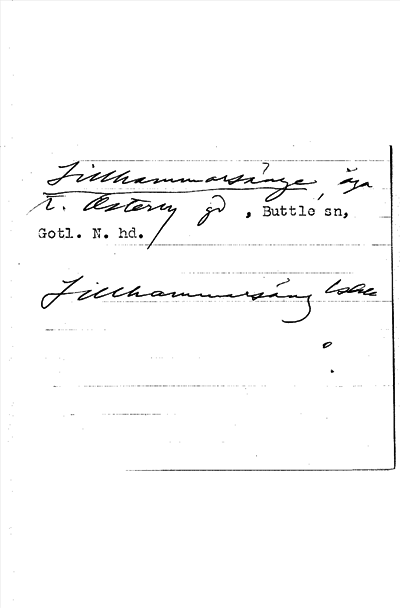 Lillhammarsänge, äga
t. Österby gd, Buttle sn,
Gotl. N. hd.
Lillhammarsäng